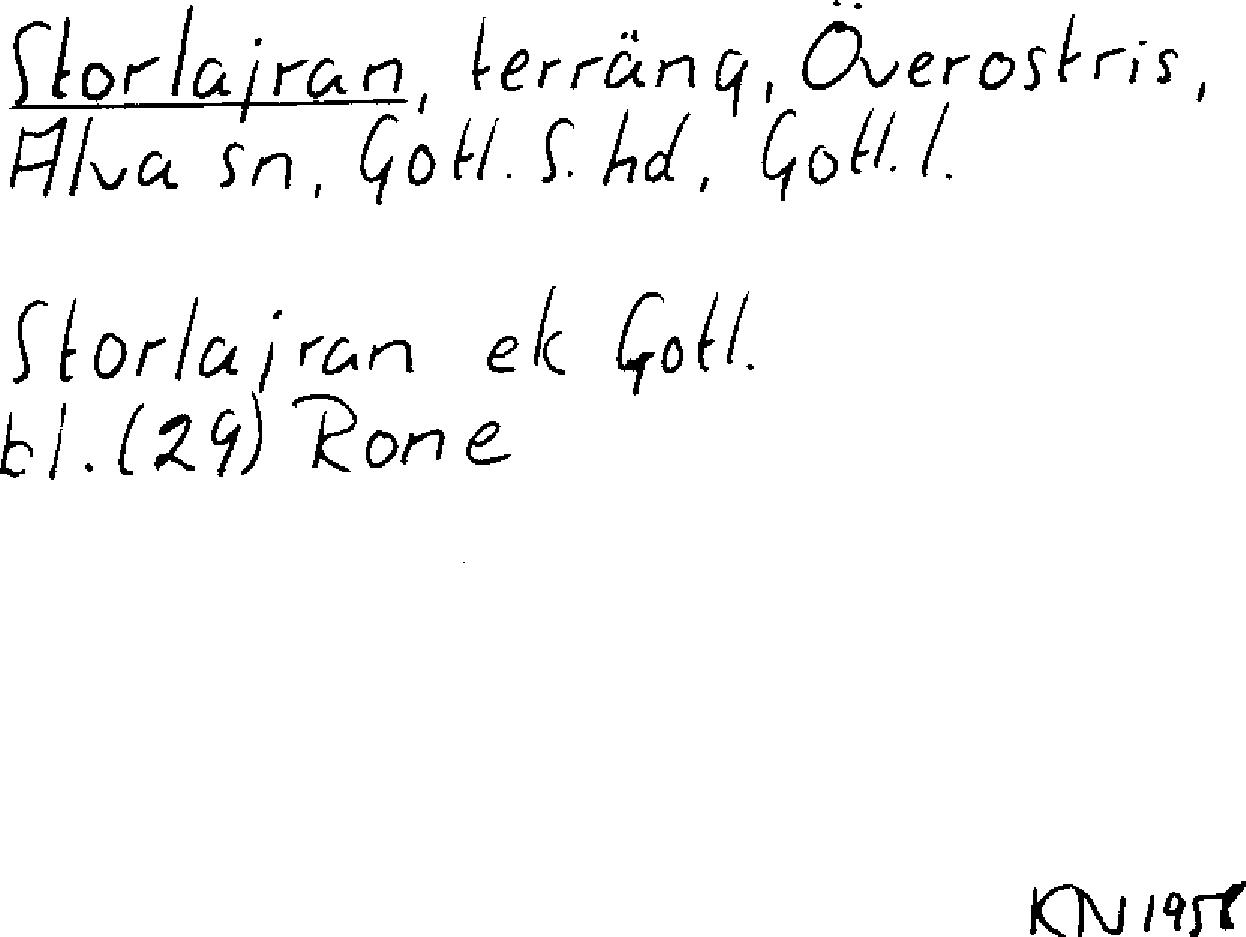 Storlajran, terräng, Överostkris,
Alva sn, Gotl. S. hd, Gotl. l.
Storlajran ek Gotl.
bl. (29) Rone
KN 1958